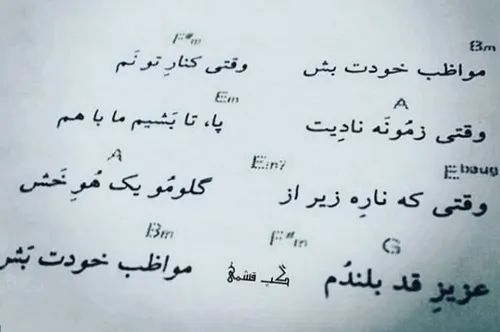 F#m Bm
مواظب خودت بش وقتی کنارِ تو نَم
Em A
وقتی زمُونَه نادِیت پا، تا بَشیم ما با هم
A Em7 Ebaug
وقتی که نارِه زیر از گلومُو یک هُوِ خَش
Bm F#m G
عزیزِ قد بلندُم مواظب خودت بَش
گَپ قشمی